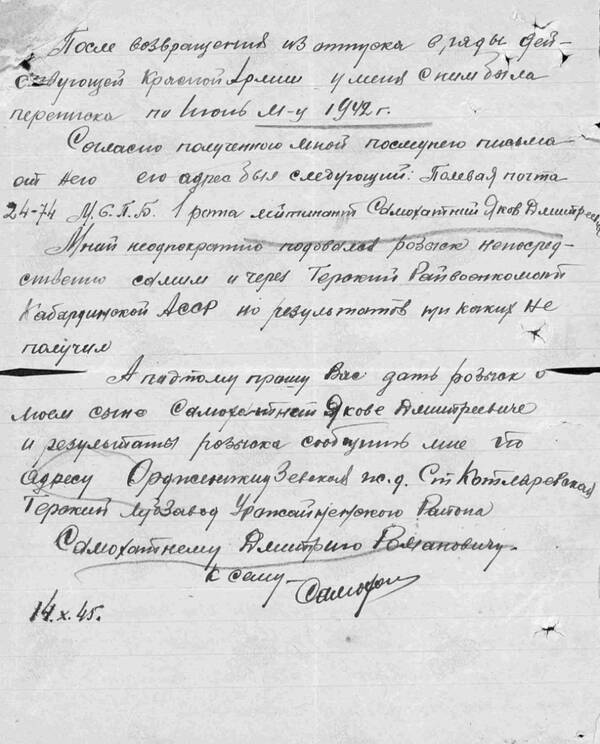 После возвращения из отпуска в ряды дей-
ствующей Красной Армии у меня с ним была
переписка по Июнь м-ц 1942 г.
Согласно полученного мной последнего письма
от него его адрес был следующий: Полевая почта
24-74 М.С.П.Б. 1 рота лейтинант Самохатний Яков Дмитреевич
Мной неоднократно подовался розыск непосред-
ственно самим и через Терский Райвоенкомат
Кабардинской АССР но результатов ни каких не
получил
А патому прошу Вас дать розыск о
моем сыне Самохатнем Якове Дмитреевиче
и результаты розыска сообщить мне по
адресу Орджоникидзевская ж.д. Ст Котляревская
Терский Завод Урожайненского Района
Самохатнему Дмитрию Романовичу.
к сему-
14.X.45.